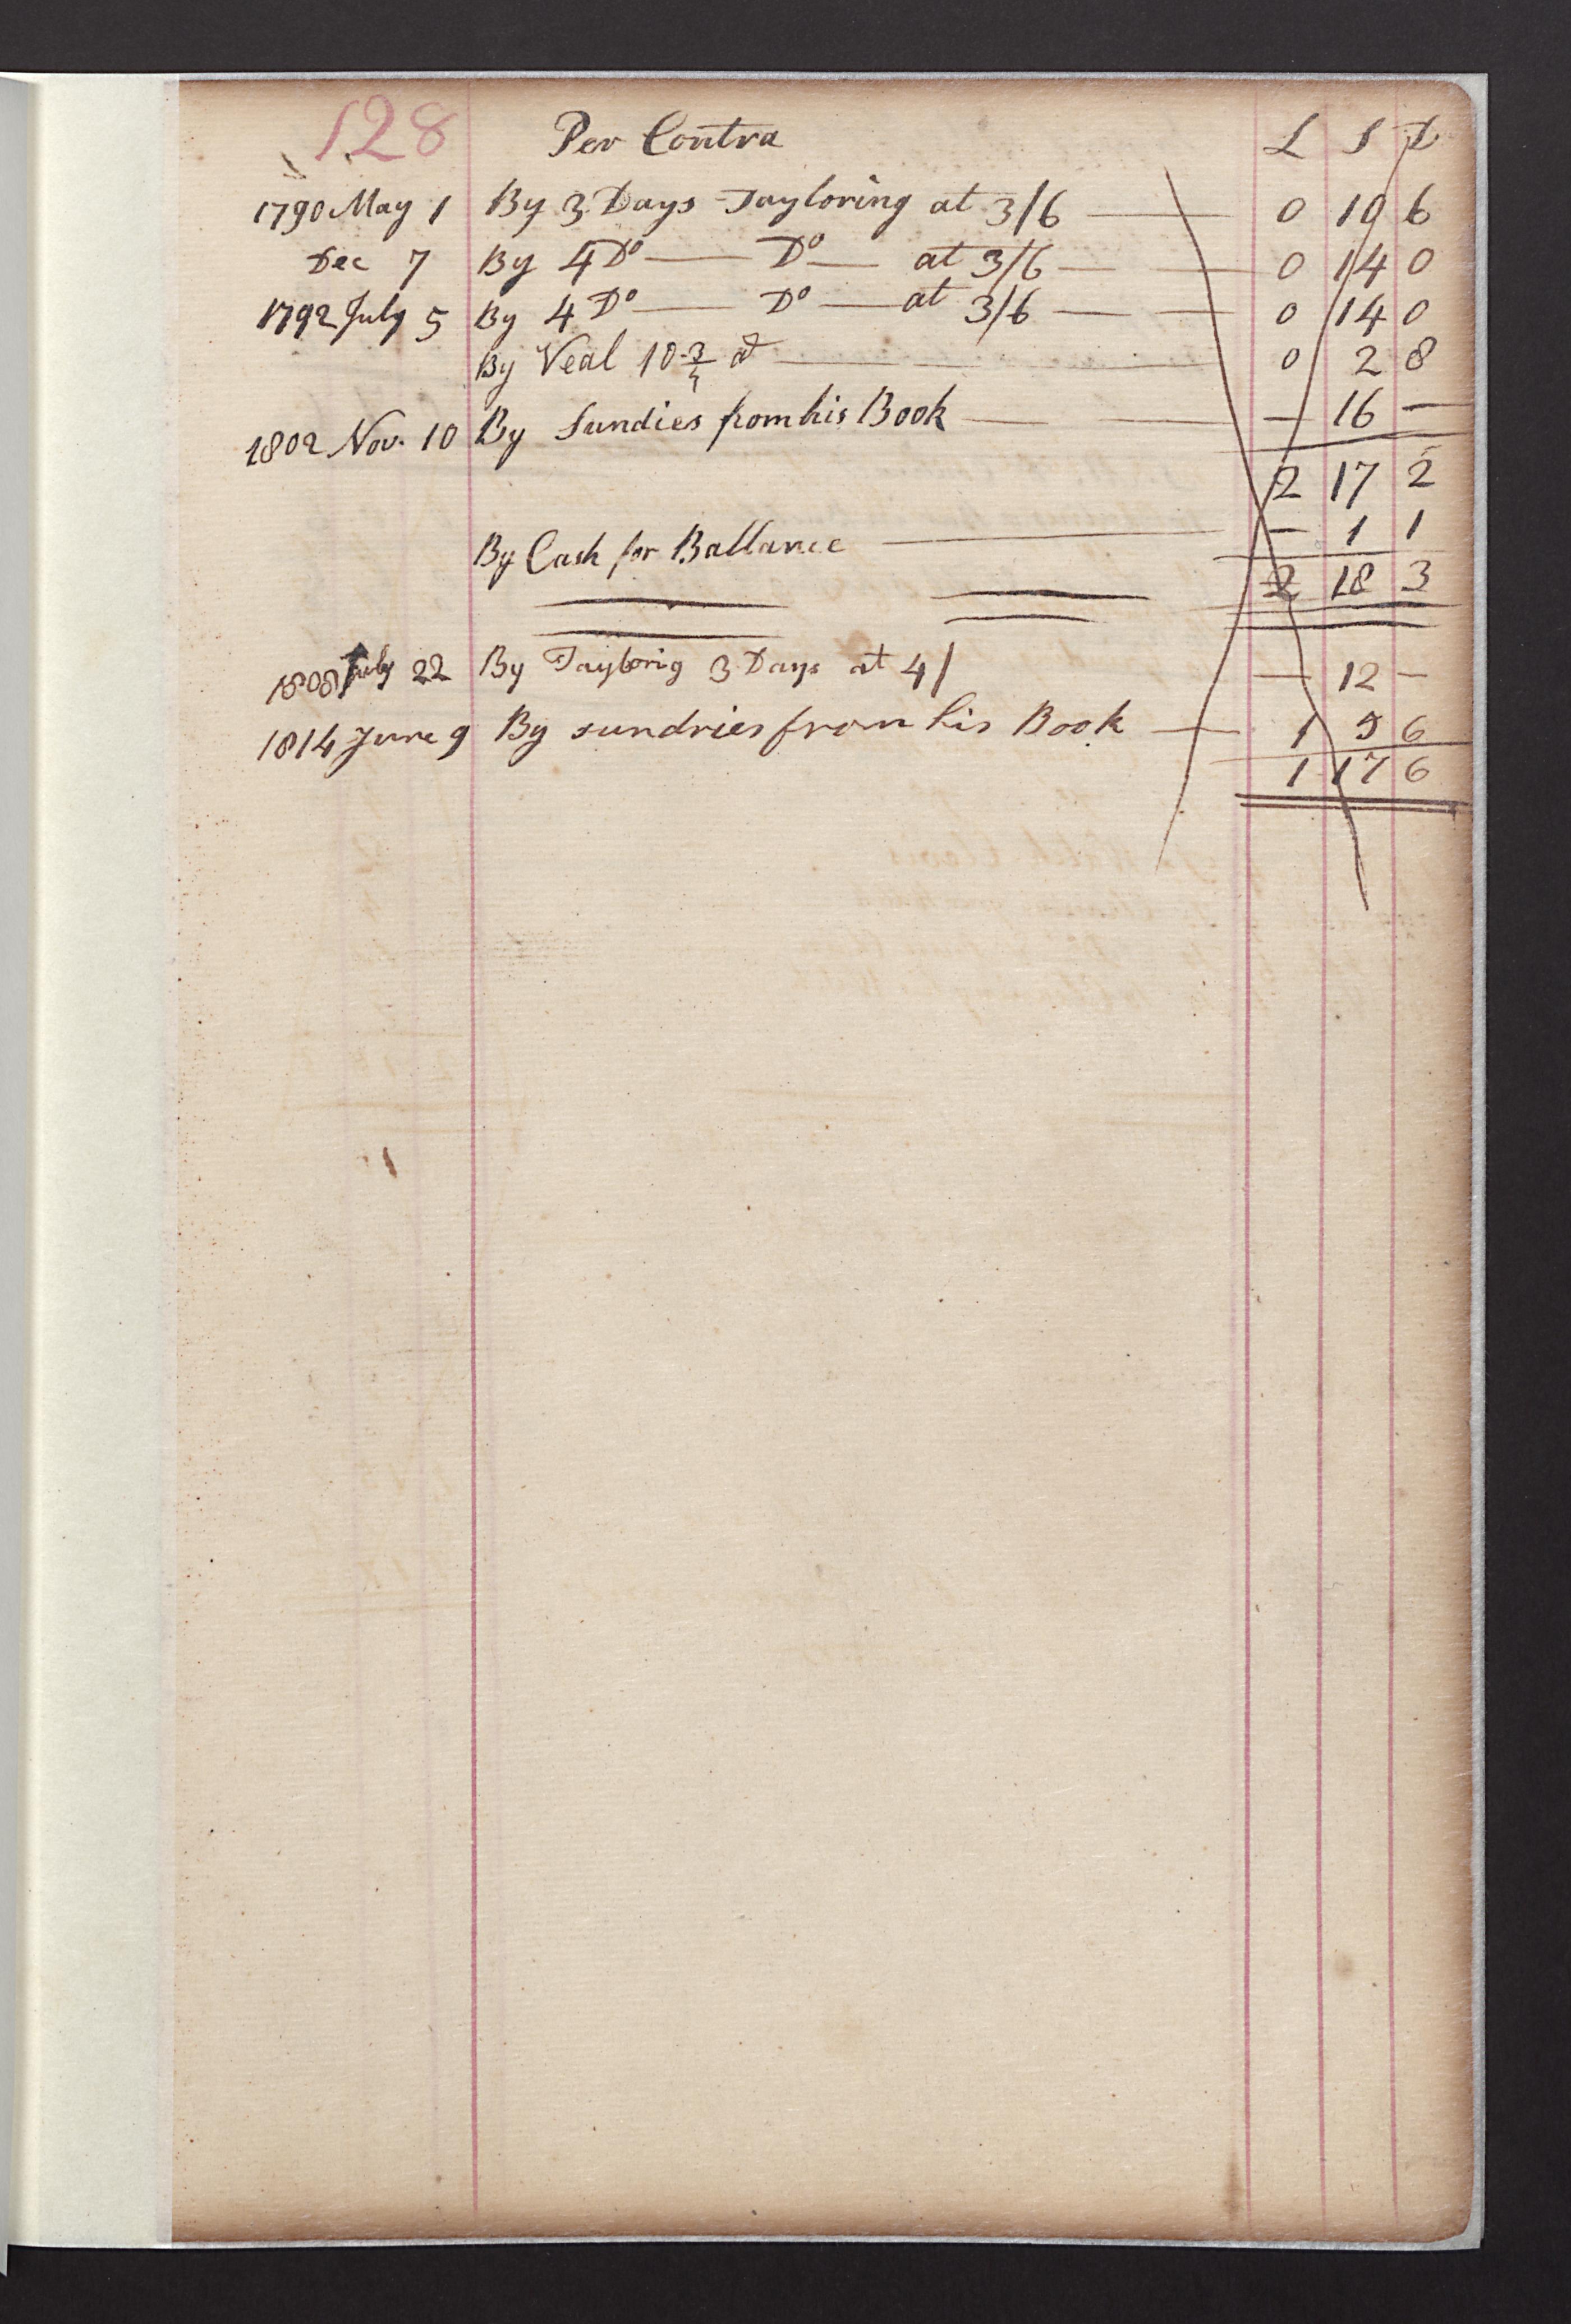 128 Per Contra L S D
1790 May 1 By 3 Days Tayloring at 3/6 — 0 10 6
Dec 7 By 4 Do — Do — at 3/6 — 0 14 0
1792 July 5 By 4 Do — Do — at 3/6 — 0 14 0
By Veal 10 3/4 at — 0 2 8
1802 Nov. 10 By Sundies from his Book — — 16 —
2 17 2
By Cash for Ballance — — 1 1
2 18 3
1808 July 22 By Tayloring 3 Days at 4/ — 12 —
1814 June 9 By sundries from his Book — 1 5 6
1 17 6